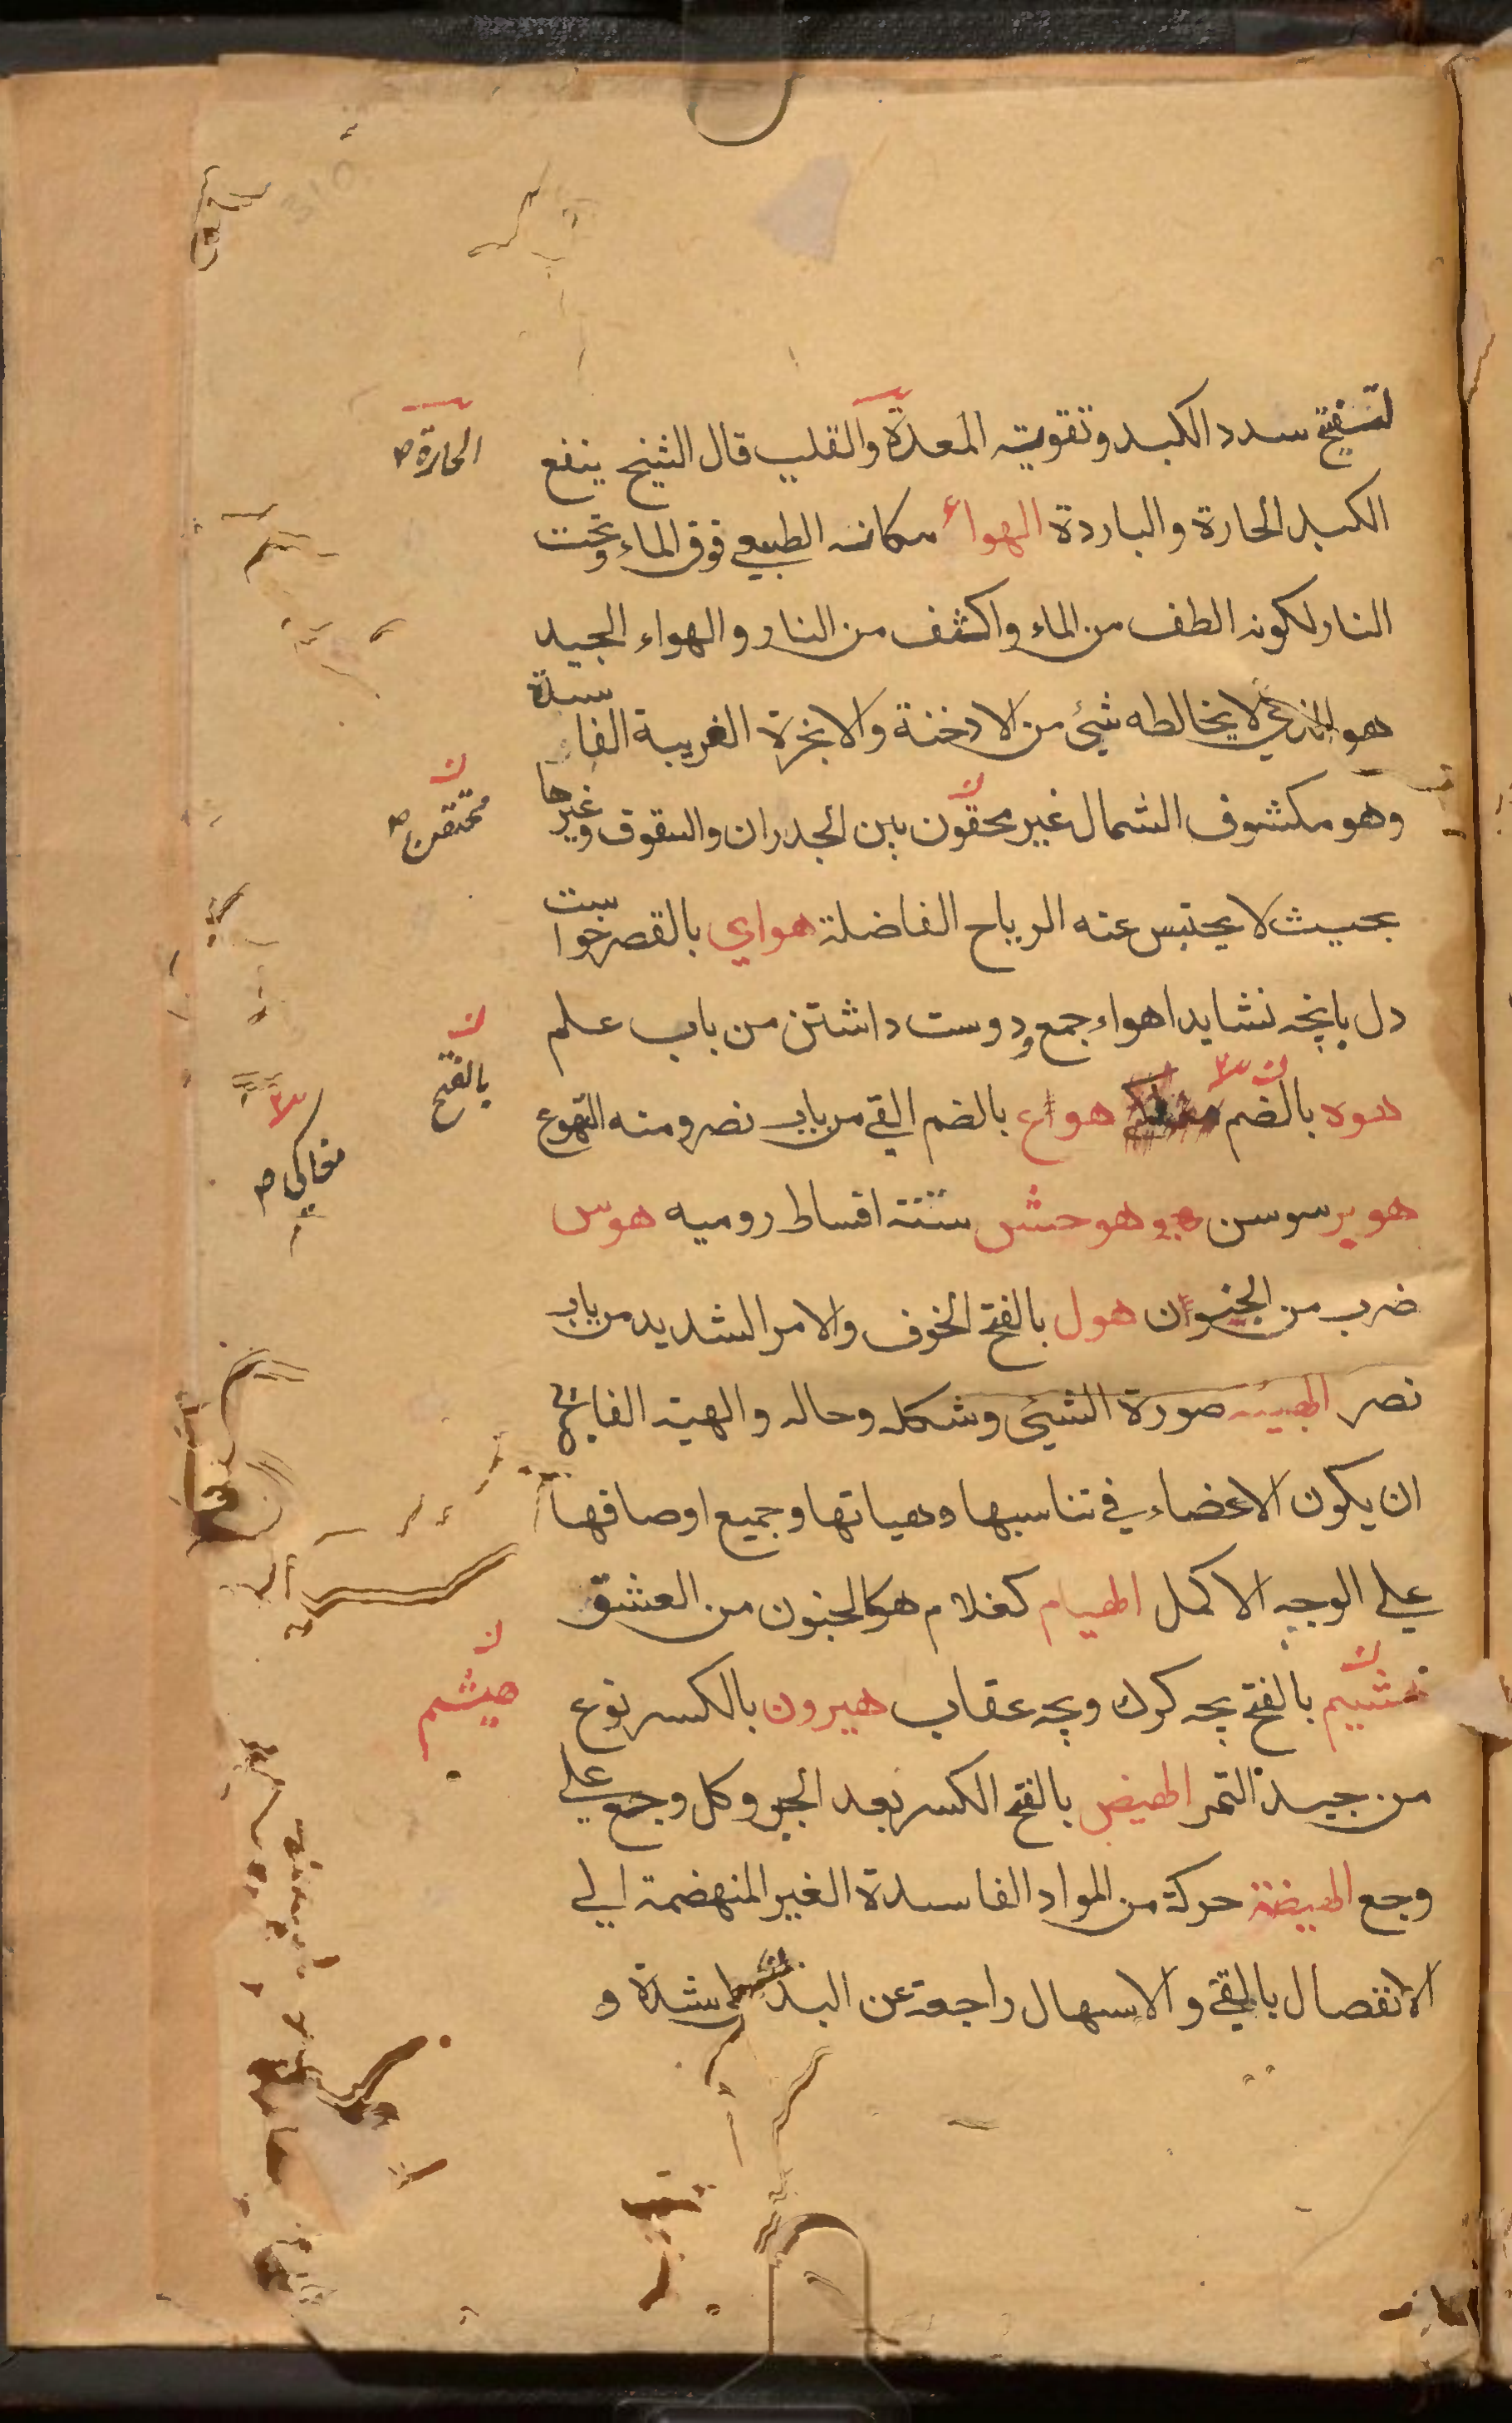 لتفتيح سدد الكبد وتقوية المعدة والقلب قال الشيخ ينفع
الحارة صح
الكبد الحارة والباردة الهواء مكانه الطبيعي فوق الماء وتحت
النار لكونه الطف من الماء واكثف من النار والهواء الجيد
هو الذي لا يخالطه شيئ من الادخنة والابخرة الغريبة الفاسدة
وهو مكشوف الشمال غير محقون بين الجدران والسقوف وغيرها
محتقن صح
بحيث لا يحتبس عنه الرياح الفاضلة هواي بالقصر خواست
دل بانچه نشايد اهواء جمع ودوست داشتن من باب علم
هوه بالضم هواع بالضم القي من باب نصر ومنه التهوع
بالفتح
مغاكي صح
هوبر سوسن هو هوحش ستة اقساط روميه هوس
ضرب من الجنون هول بالفتح الخوف والامر الشديد من باب
نصر الهيئه صورة الشيئ وشكله وحاله والهيئة
ان يكون الاعضاء في تناسبها وهياتها وجميع اوصافها
علي الوجه الاكمل الهيام كغلام هو كالجنون من العشق
بالفتح بچه كرك وبچه عقاب هيرون بالكسر نوع
هيثم
من جيد التمر الهيض بالفتح الكسر بعد الجبر وكل وجع علي
وجع الهيضة حركة من المواد الفاسدة الغير المنهضمة الي
الانفصال بالقي والاسهال راجعة عن البدن شدة و